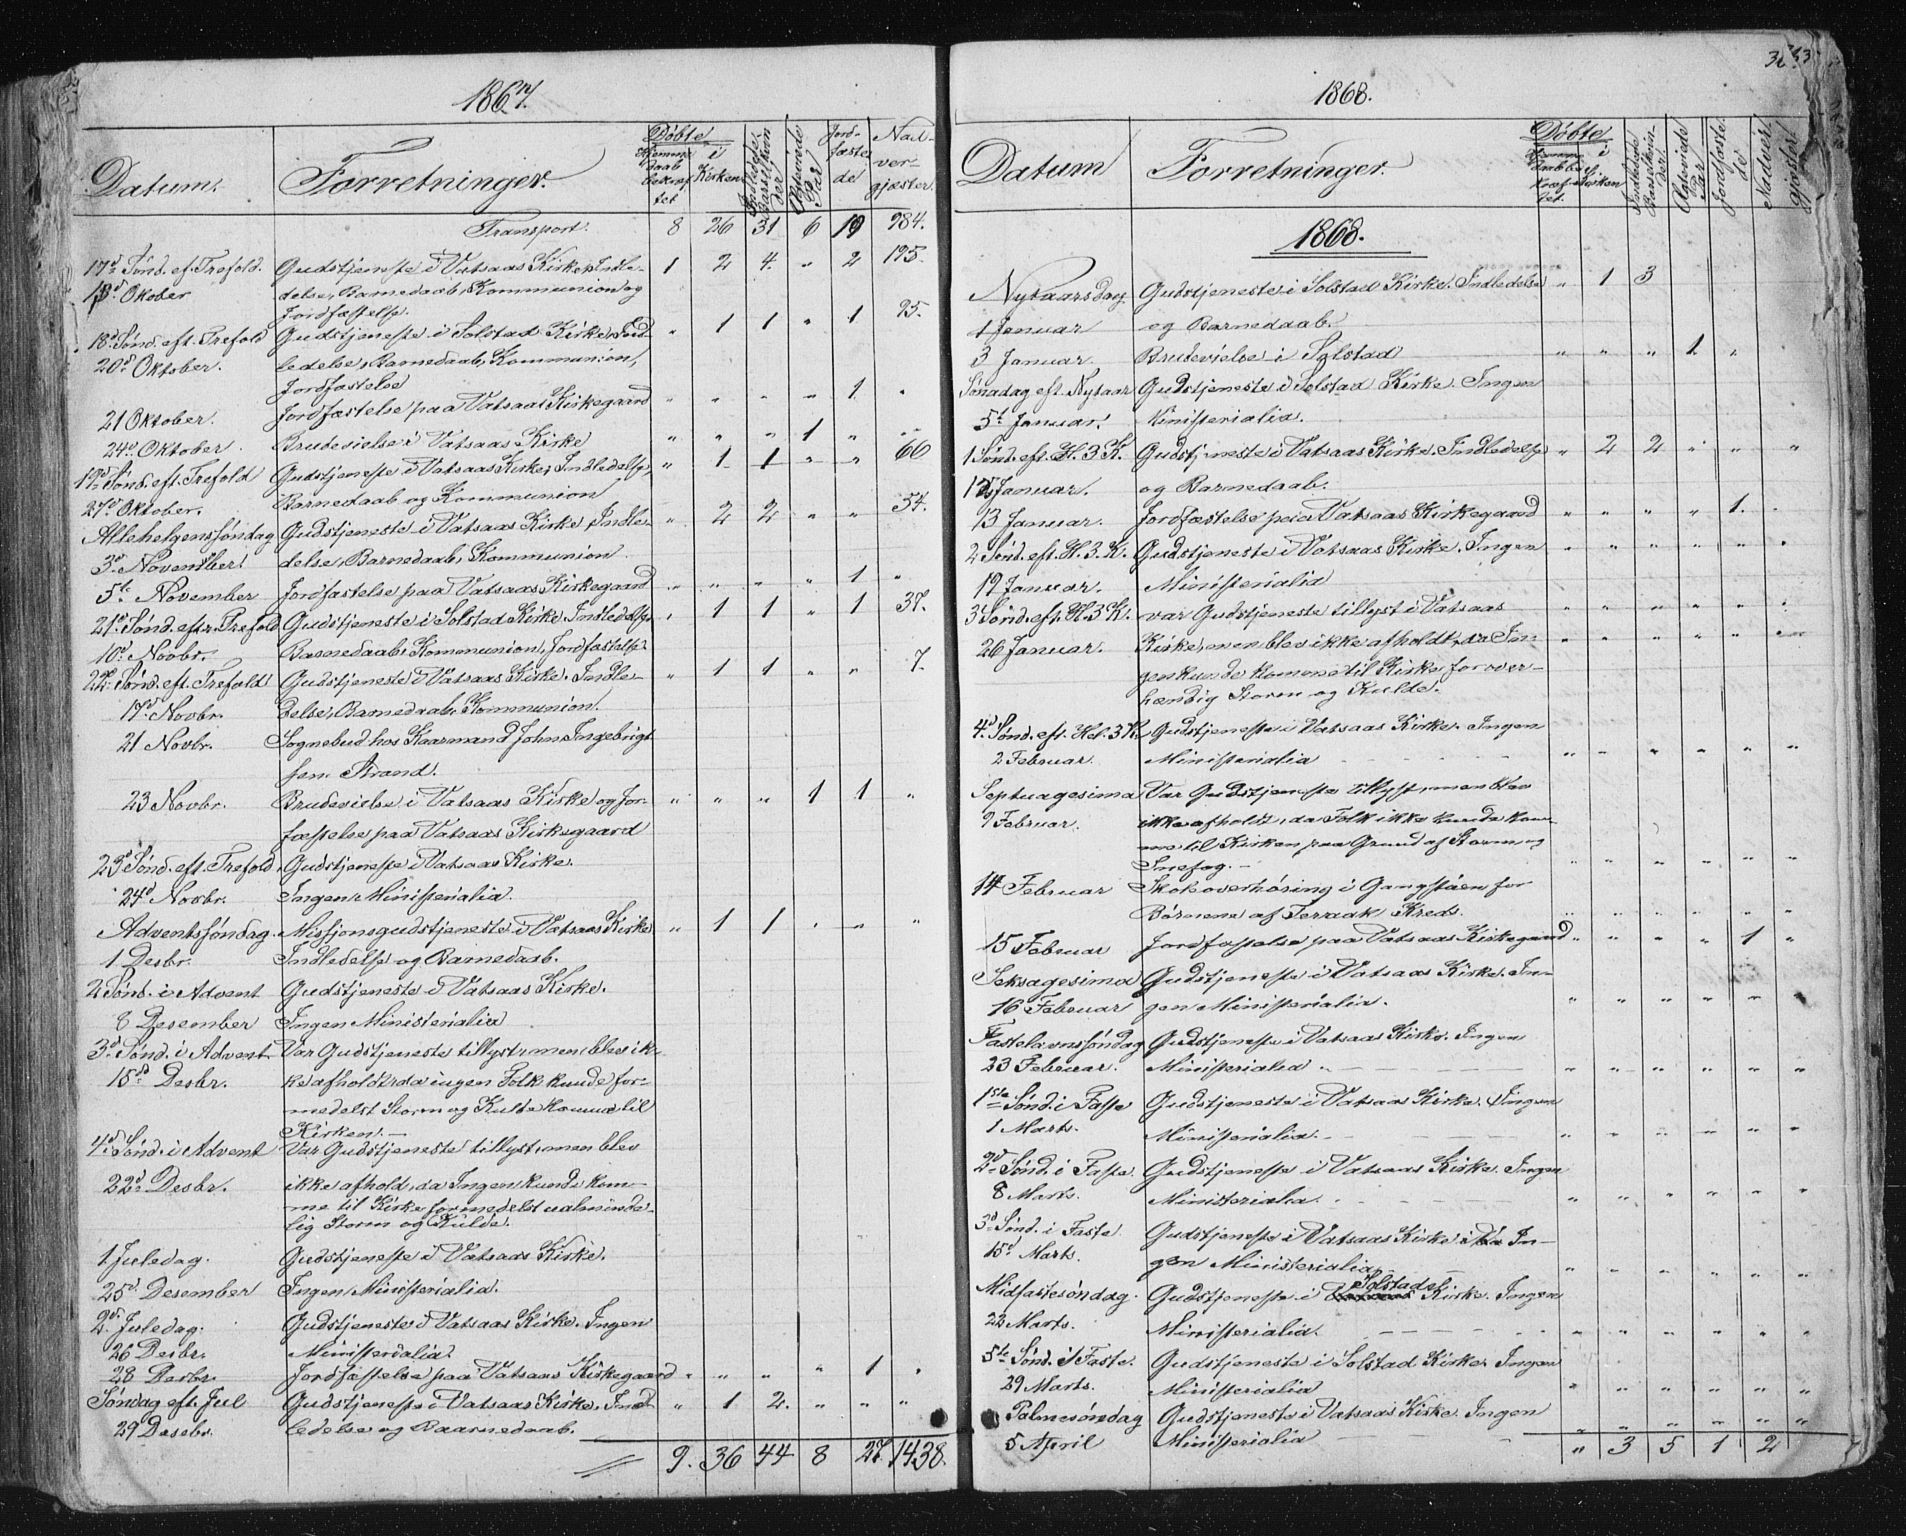 1867.
Datum. Forretninger. Døbte Hjemme Daab i Kirken Indledede Barselkvinder Ægteviede Par Jordfæstede Nadvergjæster
Transport. 8 26 31 6 19 984.
17de Sønd. ef. Trefold. Gudstjeneste i Vatsaas Kirke, Indle- 1 2 4. „ 2 195.
13d Oktober delse, Barnedaab, Kommunion og
Jordfæstelse.
18d Sønd. eft. Trefold Gudstjeneste i Solstad Kirke, Ind- „ 1 1 „ 1 95.
20d Oktober. ledelse, Barnedaab, Kommunion,
Jordfæstelse
21 Oktober. Jordfæstelse paa Vatsaas Kirkegaard „ „ „ „ 1 „
24d Oktober. Brudevielse i Vatsaas Kirke „ „ „ 1 „ „
19d Sønd. eft. Trefold Gudstjeneste i Vatsaas Kirke, Indledelse, „ 1 1 „ „ 60
27d Oktober. Barnedaab og Kommunion
Allehelgenssøndag Gudstjeneste i Vatsaas Kirke, Indle- „ 2 2 „ „ 54.
3d November. delse, Barnedaab, Kommunion
5te November Jordfæstelse paa Vatsaas Kirkegaard „ „ „ „ 1 „
21d Sønd. eftr. Trefold Gudstjeneste i Solstad Kirke, Indledelse „ 1 1 „ 1 37.
10d Novbr. Barnedaab, Kommunion, Jordfæstelse
22d Sønd. eft. Trefold Gudstjeneste i Vatsaas Kirke. Indle- „ 1 1 „ „ 7.
17d Novbr. delse, Barnedaab, Kommunion.
21 Novbr. Sognebud hos Kaarmand John Ingebrigt-
sen Strand.
23 Novbr. Brudevielse i Vatsaas Kirke og Jor- „ „ „ 1 1 „
fæstelse paa Vatsaas Kirkegaard
23d Sønd. eft. Trefold Gudstjeneste i Vatsaas Kirke.
24d Novbr. Ingen Ministerialia.
Adventssøndag Missjonsgudstjeneste i Vatsaas Kirke „ 1 1 „ „ „
1 Desbr. Indledelse og Barnedaab.
2 Sønd. i Advent Gudstjeneste i Vatsaas Kirke.
8 Desember Ingen Ministerialia
3d Sønd. i Advent Var Gudstjeneste tillyst, men blev ik-
15d Desbr. ke afholdt, da ingen Folk kunde for-
medelst Storm og Kulde komme til
Kirken. —
4d Sønd. i Advent Var Gudstjeneste tillyst, men blev
22d Desbr. ikke afhold, da Ingen kunde kom-
me til Kirke formedelst ualminde-
lig Storm og Kulde.
1 Juledag. Gudstjeneste i Vatsaas Kirke.
25d Desember Ingen Ministerialia.
2d Juledag. Gudstjeneste i Vatsaas Kirke. Ingen
26 Desbr. Ministerialia.
28 Desbr. Jordfæstelse paa Vatsaas Kirkegaard „ „ „ „ 1 „
Søndag eft. Jul Gudstjeneste i Vatsaas Kirke. Ind- „ 1 2. „ „ „
29 Desbr. ledelse og Baarnedaab.
9. 36 44 8 27. 1438.
1868.
Datum Forretninger. Døbte Hjemme i Kirken Indledede Barselkvinder. Ægteviede Par Jordfæstede Nadvergjæster
1868.
Nytaarsdag Gudstjeneste i Solstad Kirke. Indledelse „ 1 3
1 Januar og Barnedaab.
3 Januar. Brudevielse i Solstad „ „ „ 1 „
Søndag eft. Nytaar Gudstjeneste i Solstad Kirke. Ingen
5t Januar. Ministerialia.
1 Sønd. eft. H. 3 K. Gudstjeneste i Vatsaas Kirke. Indledelse „ 2 2 „ „ „
12 Januar. og Barnedaab.
13 Januar. Jordfæstelse paa Vatsaas Kirkegaard „ „ „ „ 1. „
2 Sønd. eft. H. 3 K. Gudstjeneste i Vatsaas Kirke. Ingen „ „ „ „ „ „
19 Januar. Ministerialia
3 Sønd. eft. H. 3 K. var Gudstjeneste tillyst i Vatsaas „ „ „ „ „ „
26 Januar. Kirke, men blev ikke afholdt, da In- „ „ „ „ „ „
gen kunde komme til Kirke for over-
hændig Storm og Kulde.
4d Sønd. eft. Hel. 3 K. Gudstjeneste i Vatsaas Kirke. Ingen
2 Februar. Ministerialia „ „ „ „ „ „
Septuagesima Var Gudstjeneste tillyst, men blev
9 Februar. ikke afholdt, da Folk ikke kunde kom-
me til Kirken paa Grund af Storm og
Snefog. — „ „ „ „ „ „
14 Februar Skoleoverhøring i Gangstaen for
Børnene af Terraak Kreds. „ „ „ „ „ „
15 Februar Jordfæstelse paa Vatsaas Kirkegaard „ „ „ „ 1 „
Seksagesima Gudstjeneste i Vatsaas Kirke. In-
16 Februar gen Ministerialia. „ „ „ „ „ „
Fastelavnssøndag Gudstjeneste i Vatsaas Kirke. Ingen
23 Februar. Ministerialia „ „ „ „ „ „
1ste Sønd. i Faste Gudstjeneste i Vatsaas Kirke. Ingen
1 Marts. Ministerialia. „ „ „ „ „ „
2d Sønd. i Faste. Gudstjeneste i Vatsaas Kirke. Ingen
8 Marts. Ministerialia. „ „ „ „ „ „
3d Sønd. i Faste Gudstjeneste i Vatsaas Kirke In-
15d Marts. gen Ministerialia. „ „ „ „ „ „
Midfastesøndag. Gudstjeneste i Solstad Kirke. Ingen
22 Marts. Ministerialia. „ „ „ „ „ „
5te Sønd. i Faste. Gudstjeneste i Solstad Kirke. Ingen
29 Marts. Ministerialia „ „ „ „ „ „
Palmesøndag Gudstjeneste i Vatsaas Kirke. Ingen
5 April Ministerialia „ „ „ „ „ „
„ 3 5 1 2